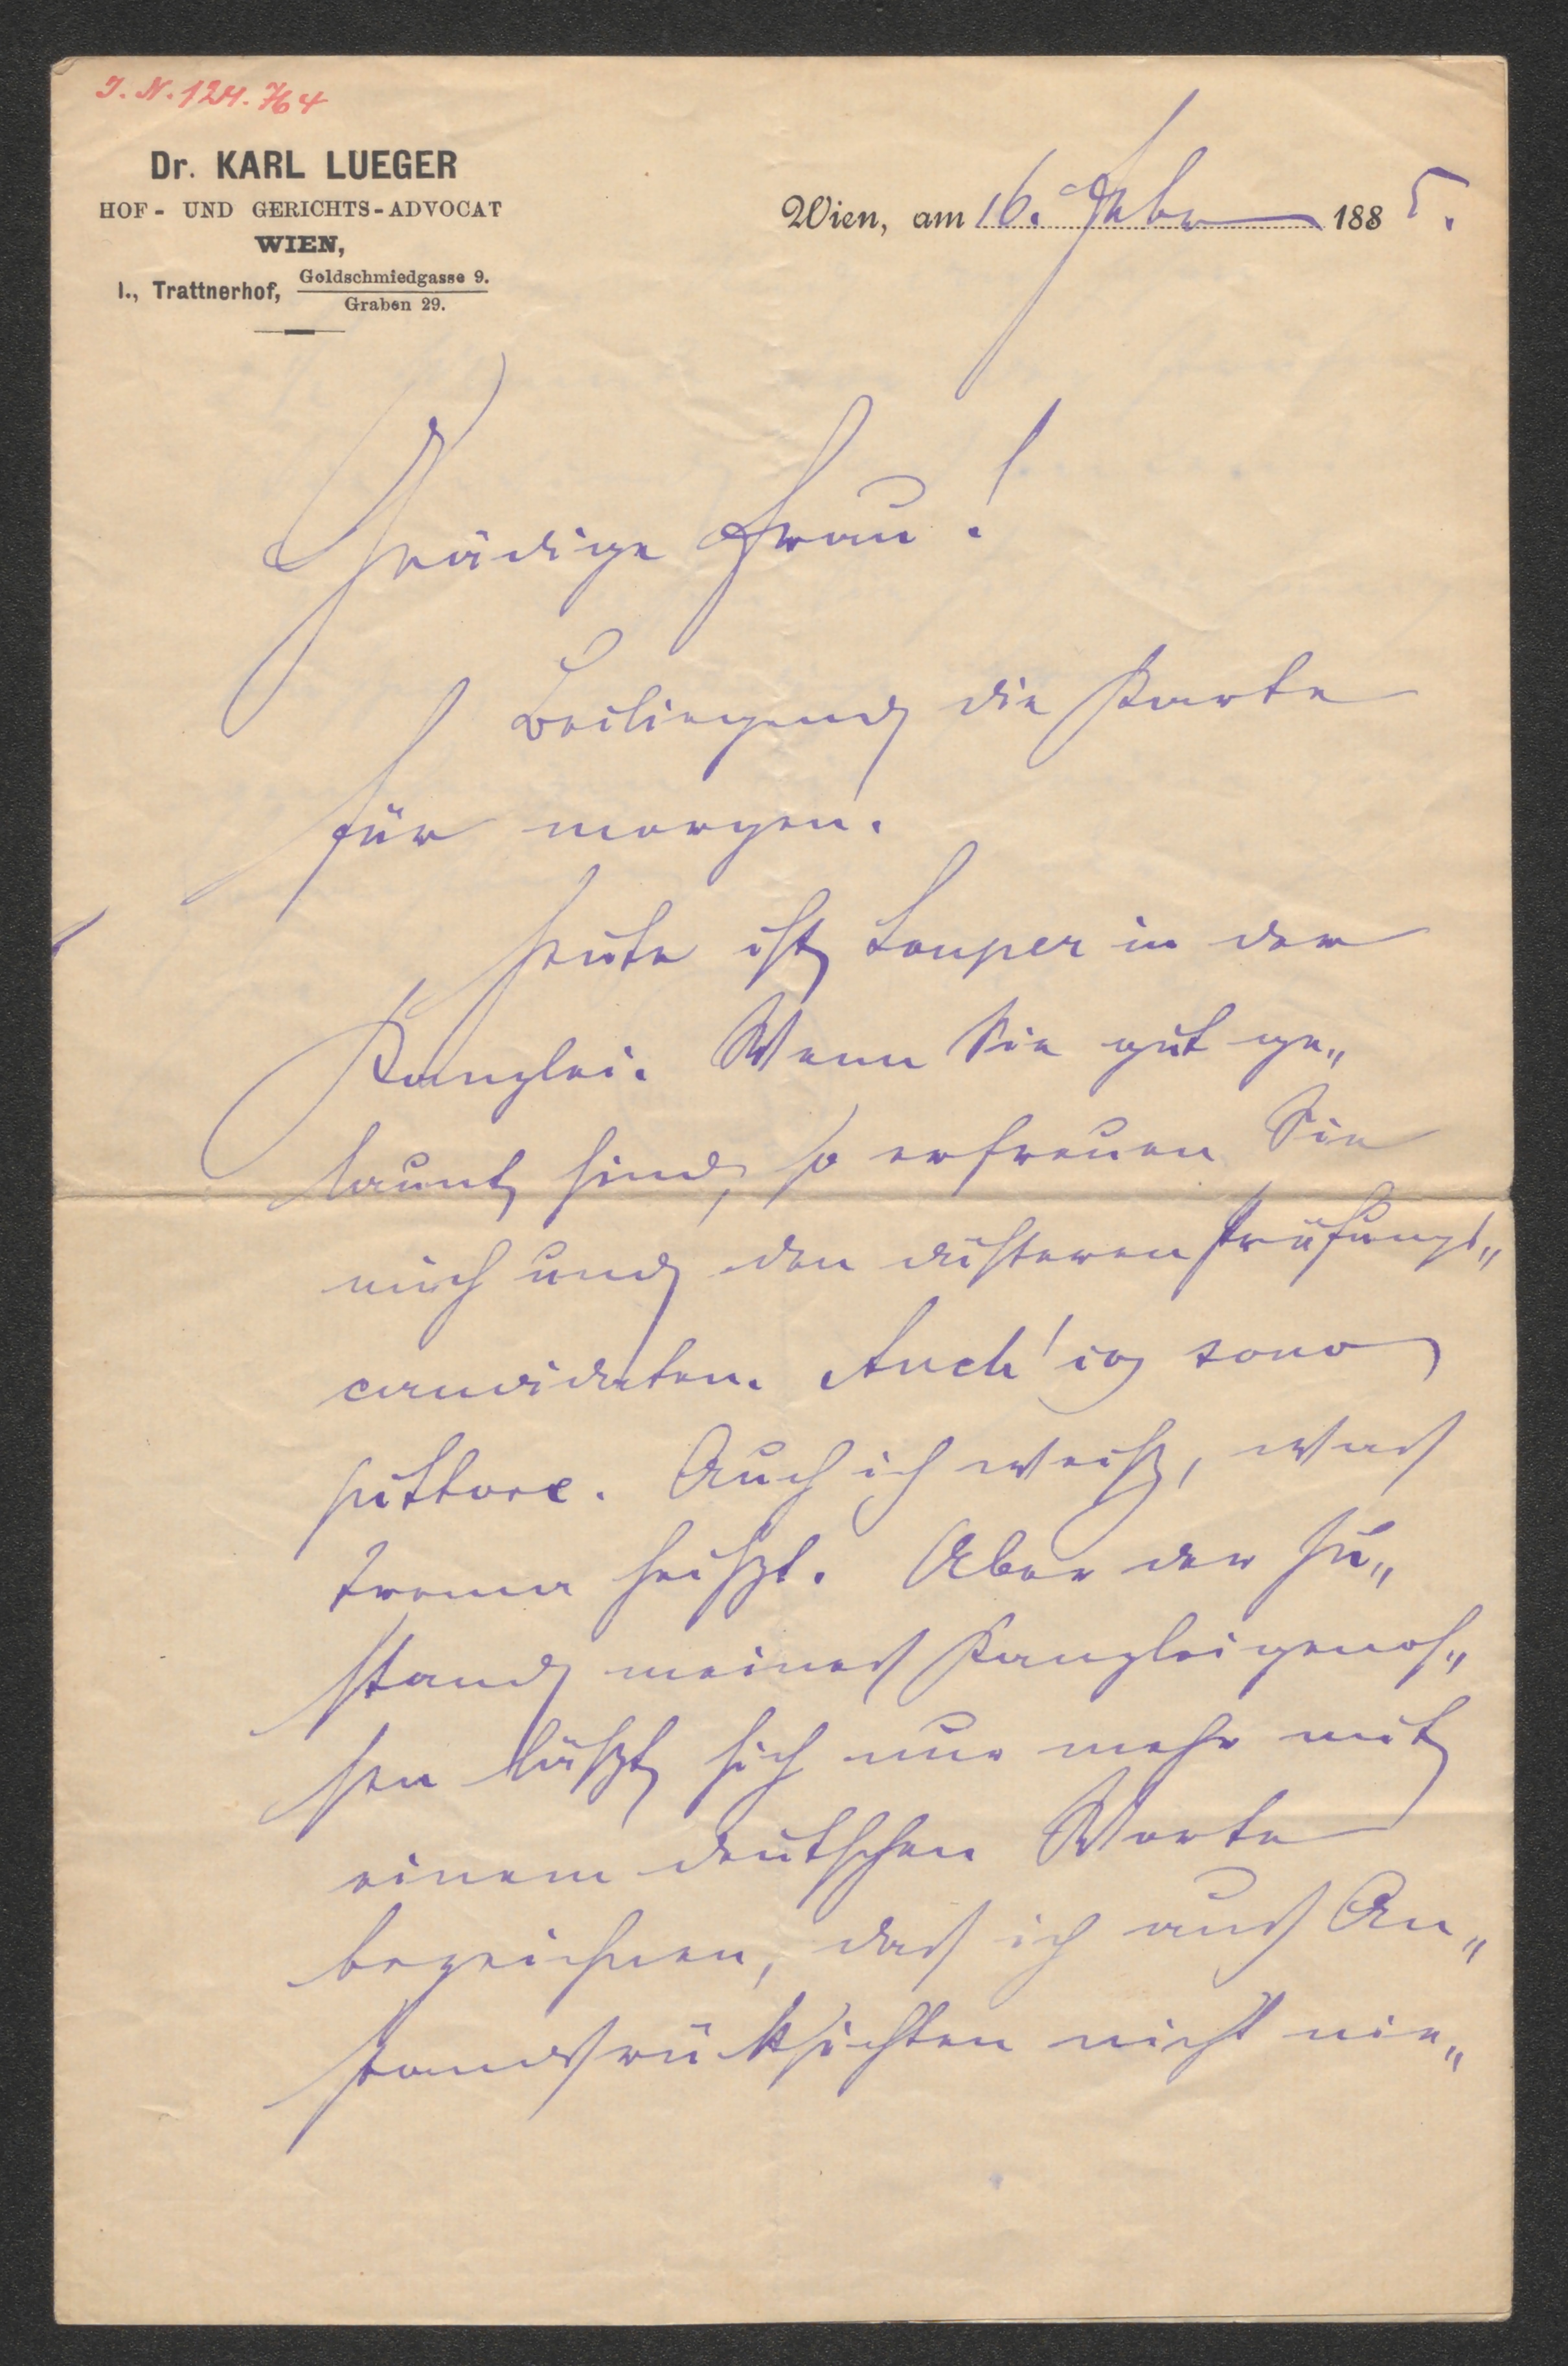 J. N. 124.764
Dr. KARL LUEGER
HOF- UND GERICHTS-ADVOCAT
WIEN,
I., Trattnerhof, Goldschmiedgasse 9.
Graben 29.
Wien, am 16. Febr 1885.
Gnädige Frau!
Beiliegend die Karte
für morgen.
Heute ist Souper in der
Kanzlei. Wenn Sie gut ge„
launt sind, so erfreuen Sie
mich und den düsteren Prüfungs„
candidaten. Anch' io sono
pittore. Auch ich weiß, was
trema heißt. Aber der Zu„
stand meines Kanzleigenos„
sen läßt sich nur mehr mit
einem deutschen Worte
bezeichnen, das ich aus An„
standsrücksichten nicht nie„